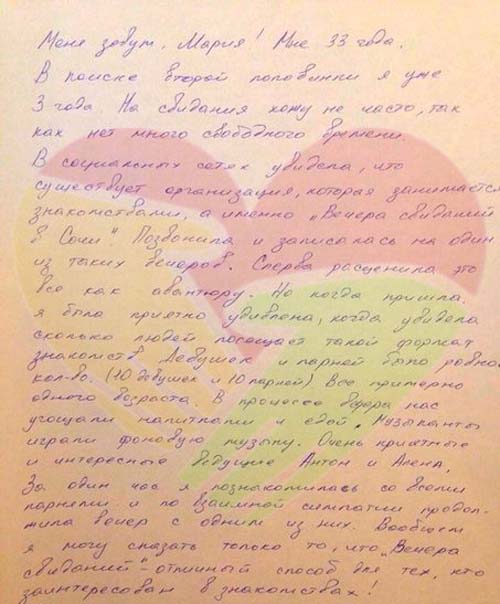 Меня зовут Мария! Мне 33 года.
В поиске второй половинки я уже
3 года. На свидания хожу не часто, так
как нет много свободного времени.
В социальных сетях увидела, что
существует организация, которая занимается
знакомствами, а именно „Вечера свиданий
в Сочи". Позвонила и записалась на один
из таких вечеров. Сперва расценила это
все как авантюру. Но когда пришла.
я была приятно удивлена, когда увидела
сколько людей посещает такой формат
знакомств. Девушек и парней было равно
кол-во. (10 девушек и 10 парней) Все примерно
одного возраста. В процессе вечера нас
угощали напитками и едой. Музыканты
играли фоновую музыку. Очень приятные
и интересные ведущие Антон и Алена.
За один час я познакомилась со всеми
парнями и по взаимной симпатии продол-
жила вечер с одним из них. Вообщем
я могу сказать только то, что „Вечера
свиданий" - отличный способ для тех, кто
заинтересован в знакомствах!